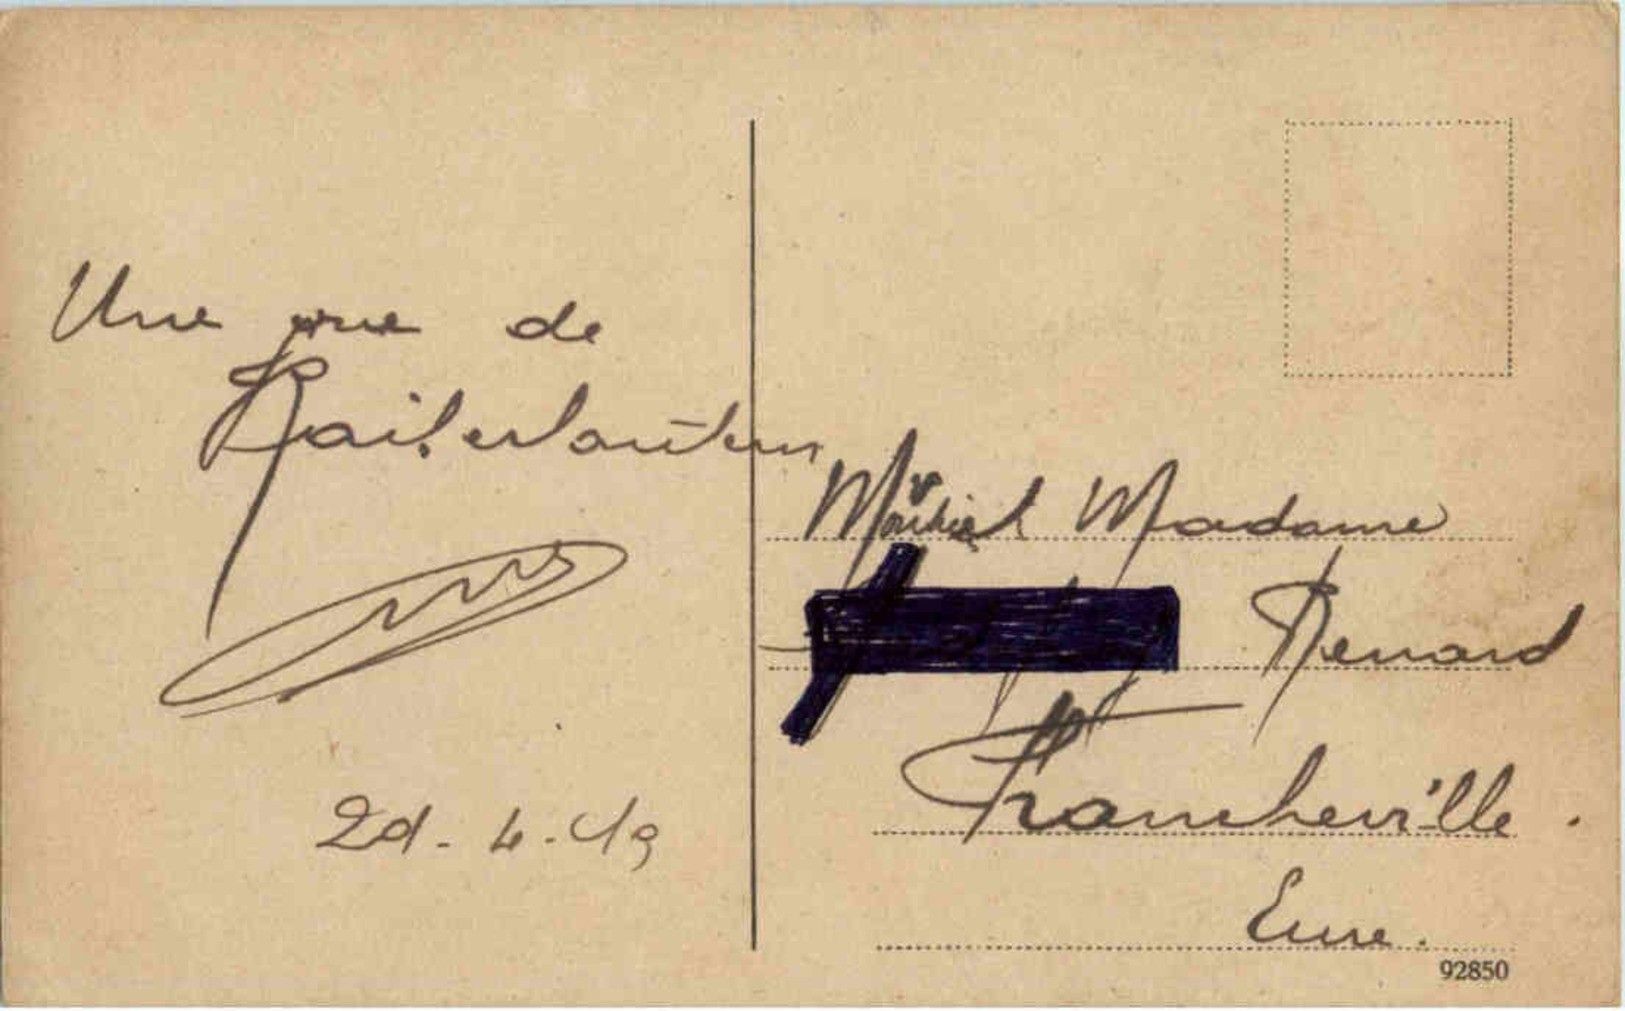 Une vue de
Kaiserslautern
21-4-49
Monsieur et Madame
Renard
Francheville.
Eure.
92850